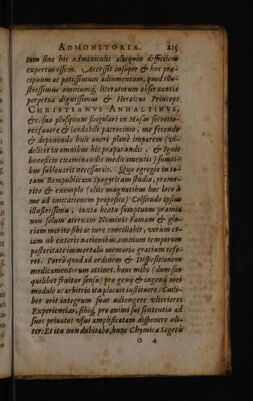 ADMONITORIA. 215
tum sine his adminiculis alioquin difficilem
expertus essem. Accessit insuper & hoc præ-
cipuum ac potissimum adiumentum, quod illu-
strissimus omniumq́; literatorum observantia
perpetua dignissimus & Heroicus Princeps
CHRISTIANVS ANHALTINVS,
&c. suo plusquam singulari in Musæ secretio-
res favore & laudabili patrocinio, me ferendo
& dependendo huic operi planè imparem (vi-
delicet in omnibus his præparandis, & Ignis
beneficio examinandis medicamentis) sumti-
bus sublevarit necessariis. Quo egregio in ve-
ram Rempublicam Spagyricam studio, prome-
rito & exemplo (aliis magnatibus hoc loco à
me ad imitationem proposito) Celsitudo ipsius
illustrissima, iuxta beata sumptuum præmia
non solum æternam Nominis Famam & glo-
riam meritò sibi ac iure conciliabit, verum et-
iam ab exteris nationibus, omnium temporum
posteritate immortalis memoriæ gratiam refe-
ret. Porrò quod ad ordinem & Dispositionem
medicamentorum attinet, hanc mihi (dum suo
quilibet fruitur sensu) pro genij & ingenij mei
modulo ac arbitrio ita placuit instituere. Cuili-
bet erit integrum suas adiongere vlteriores
Experientias, sibiq́; pro animi sui sententia ad
suos privatos vsus amplificatam disponere ali-
ter. Et ita non dubitabo, hanc Chymicæ Segetis
O 4